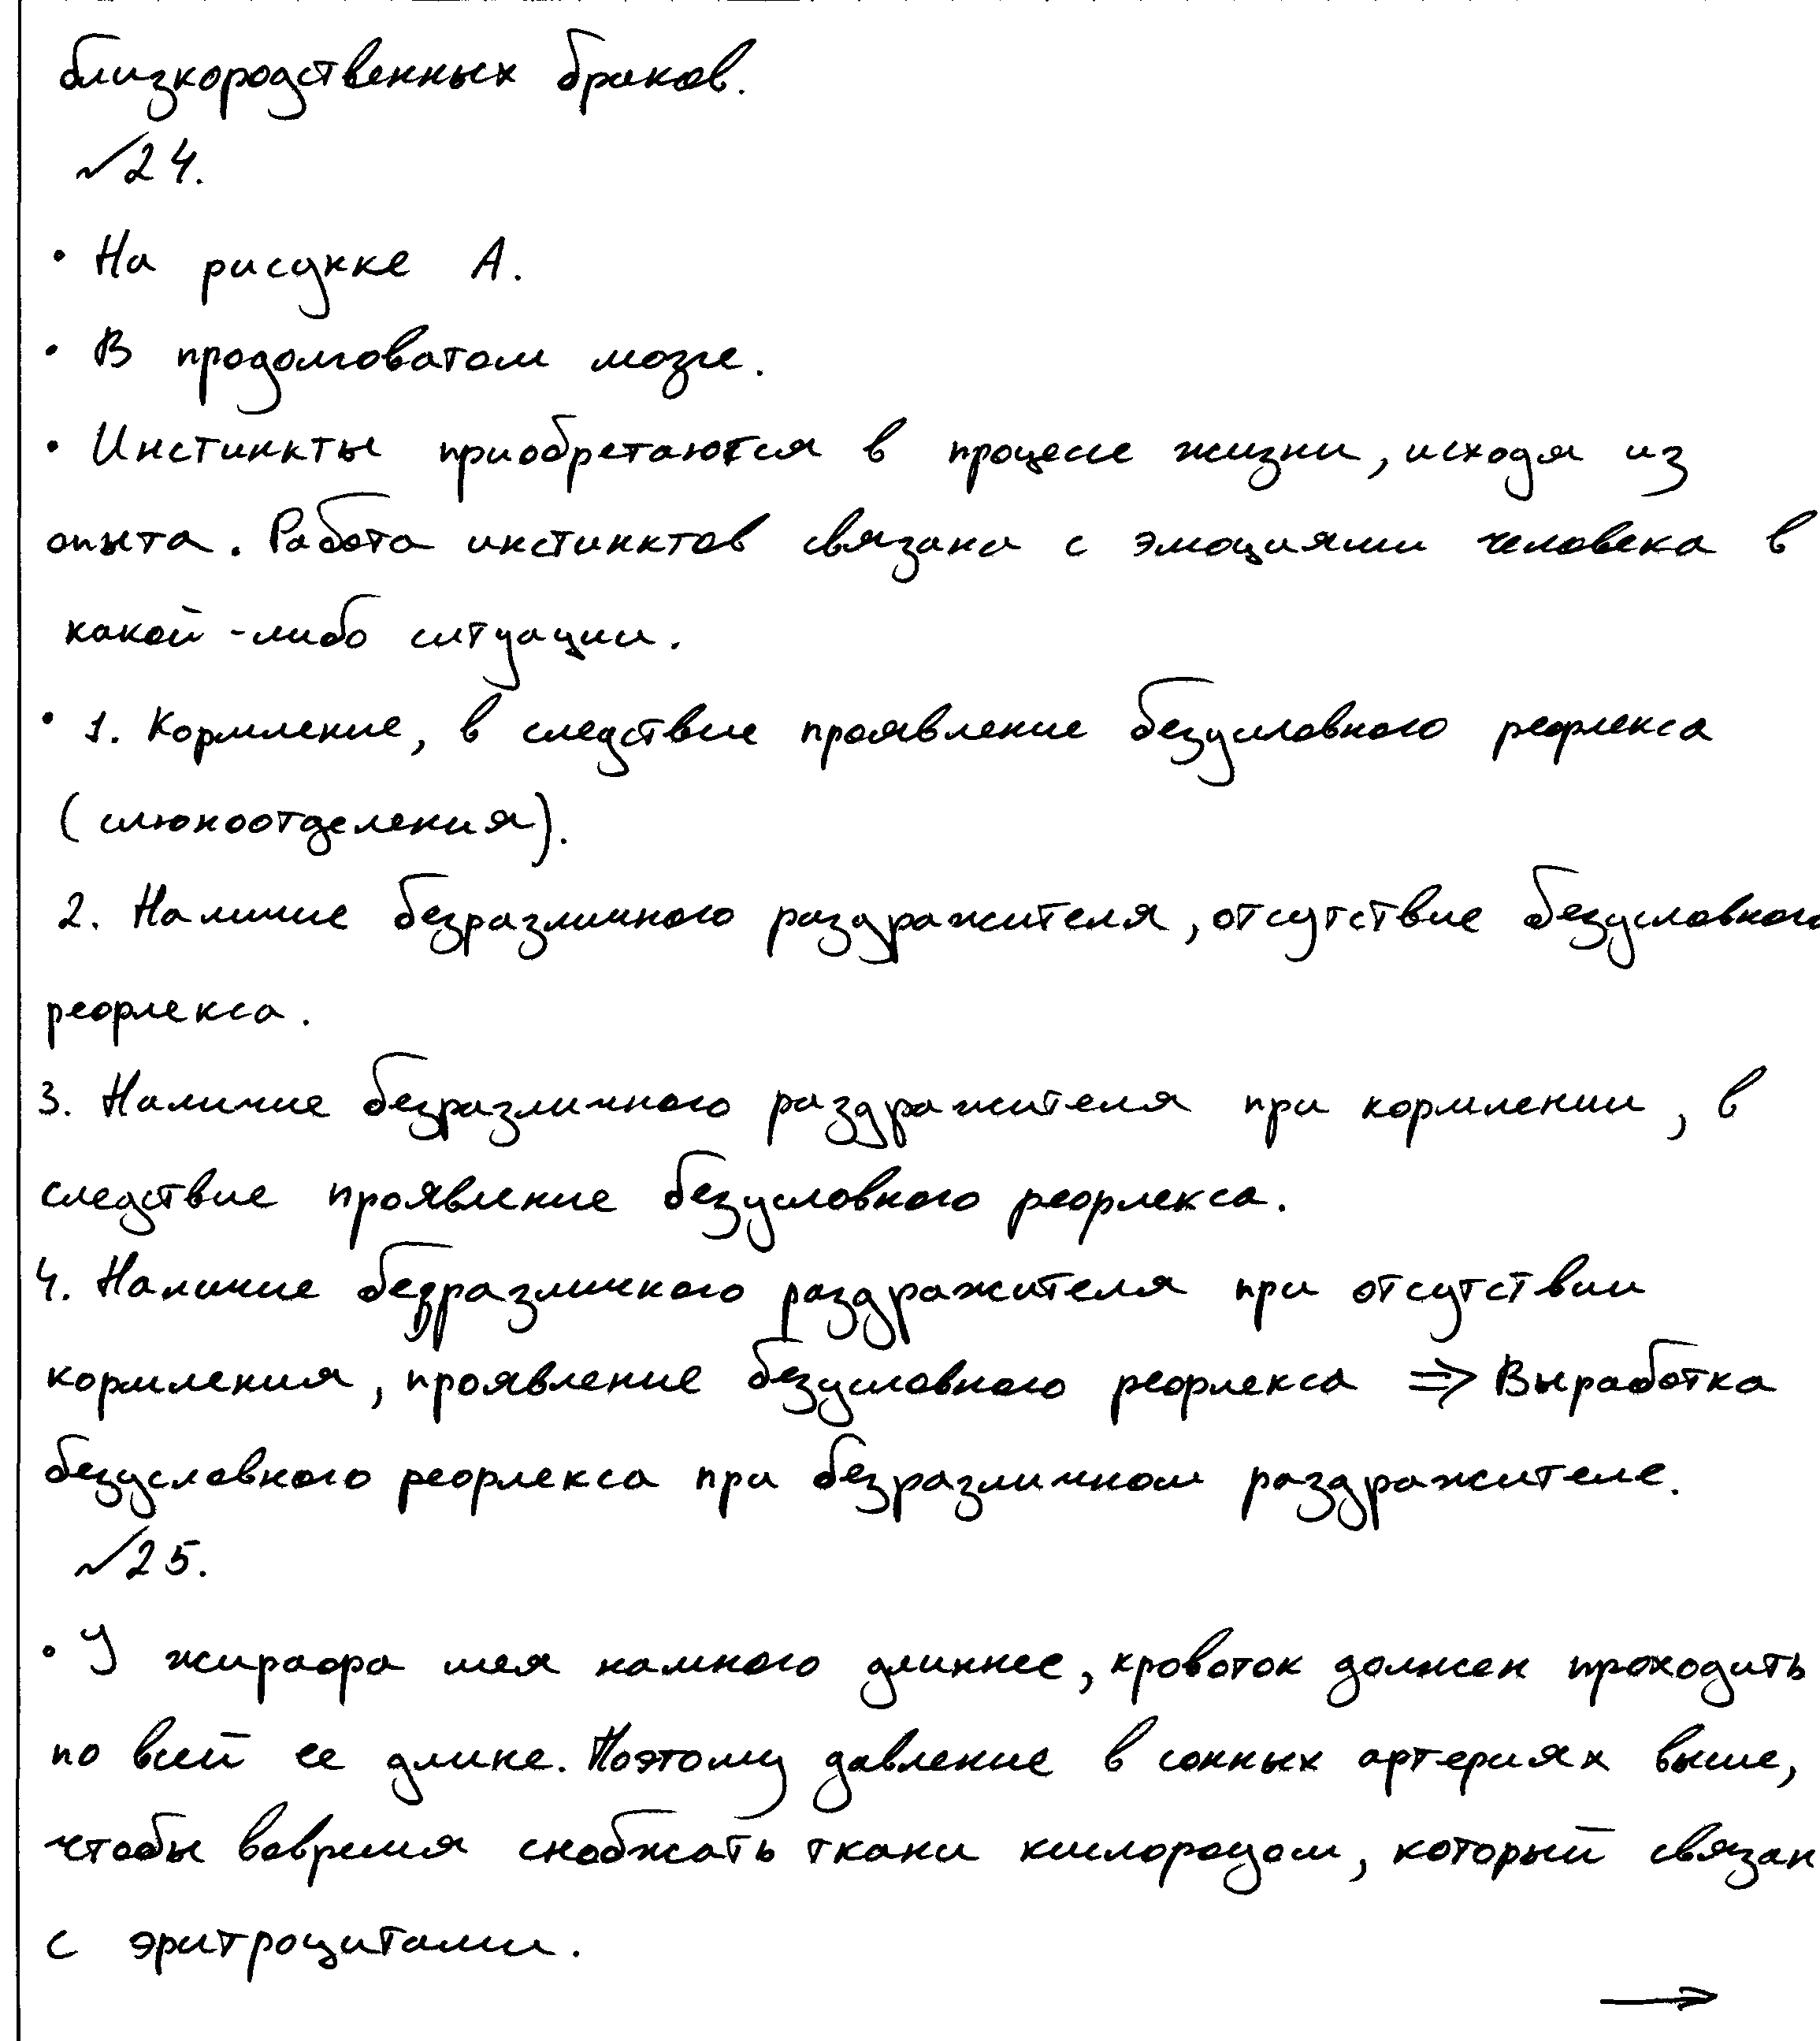 близкородственных браков.
№24.
• На рисунке А.
• В продолговатом мозге.
• Инстинкты приобретаются в процессе жизни, исходя из
опыта. Работа инстинктов связана с эмоциями человека в
какой-либо ситуации.
• 1. Кормление, в следствие проявление безусловного рефлекса
(слюноотделения).
2. Наличие безразличного раздражителя, отсутствие безусловного
рефлекса.
3. Наличие безразличного раздражителя при кормлении, в
следствие проявление безусловного рефлекса.
4. Наличие безразличного раздражителя при отсутствии
кормления, проявление безусловного рефлекса => Выработка
безусловного рефлекса при безразличном раздражителе.
№25.
• У жирафа шея намного длиннее, кровоток должен проходить
по всей ее длине. Поэтому давление в сонных артериях выше,
чтобы вовремя снабжать ткани кислородом, который связан
с эритроцитами.
→